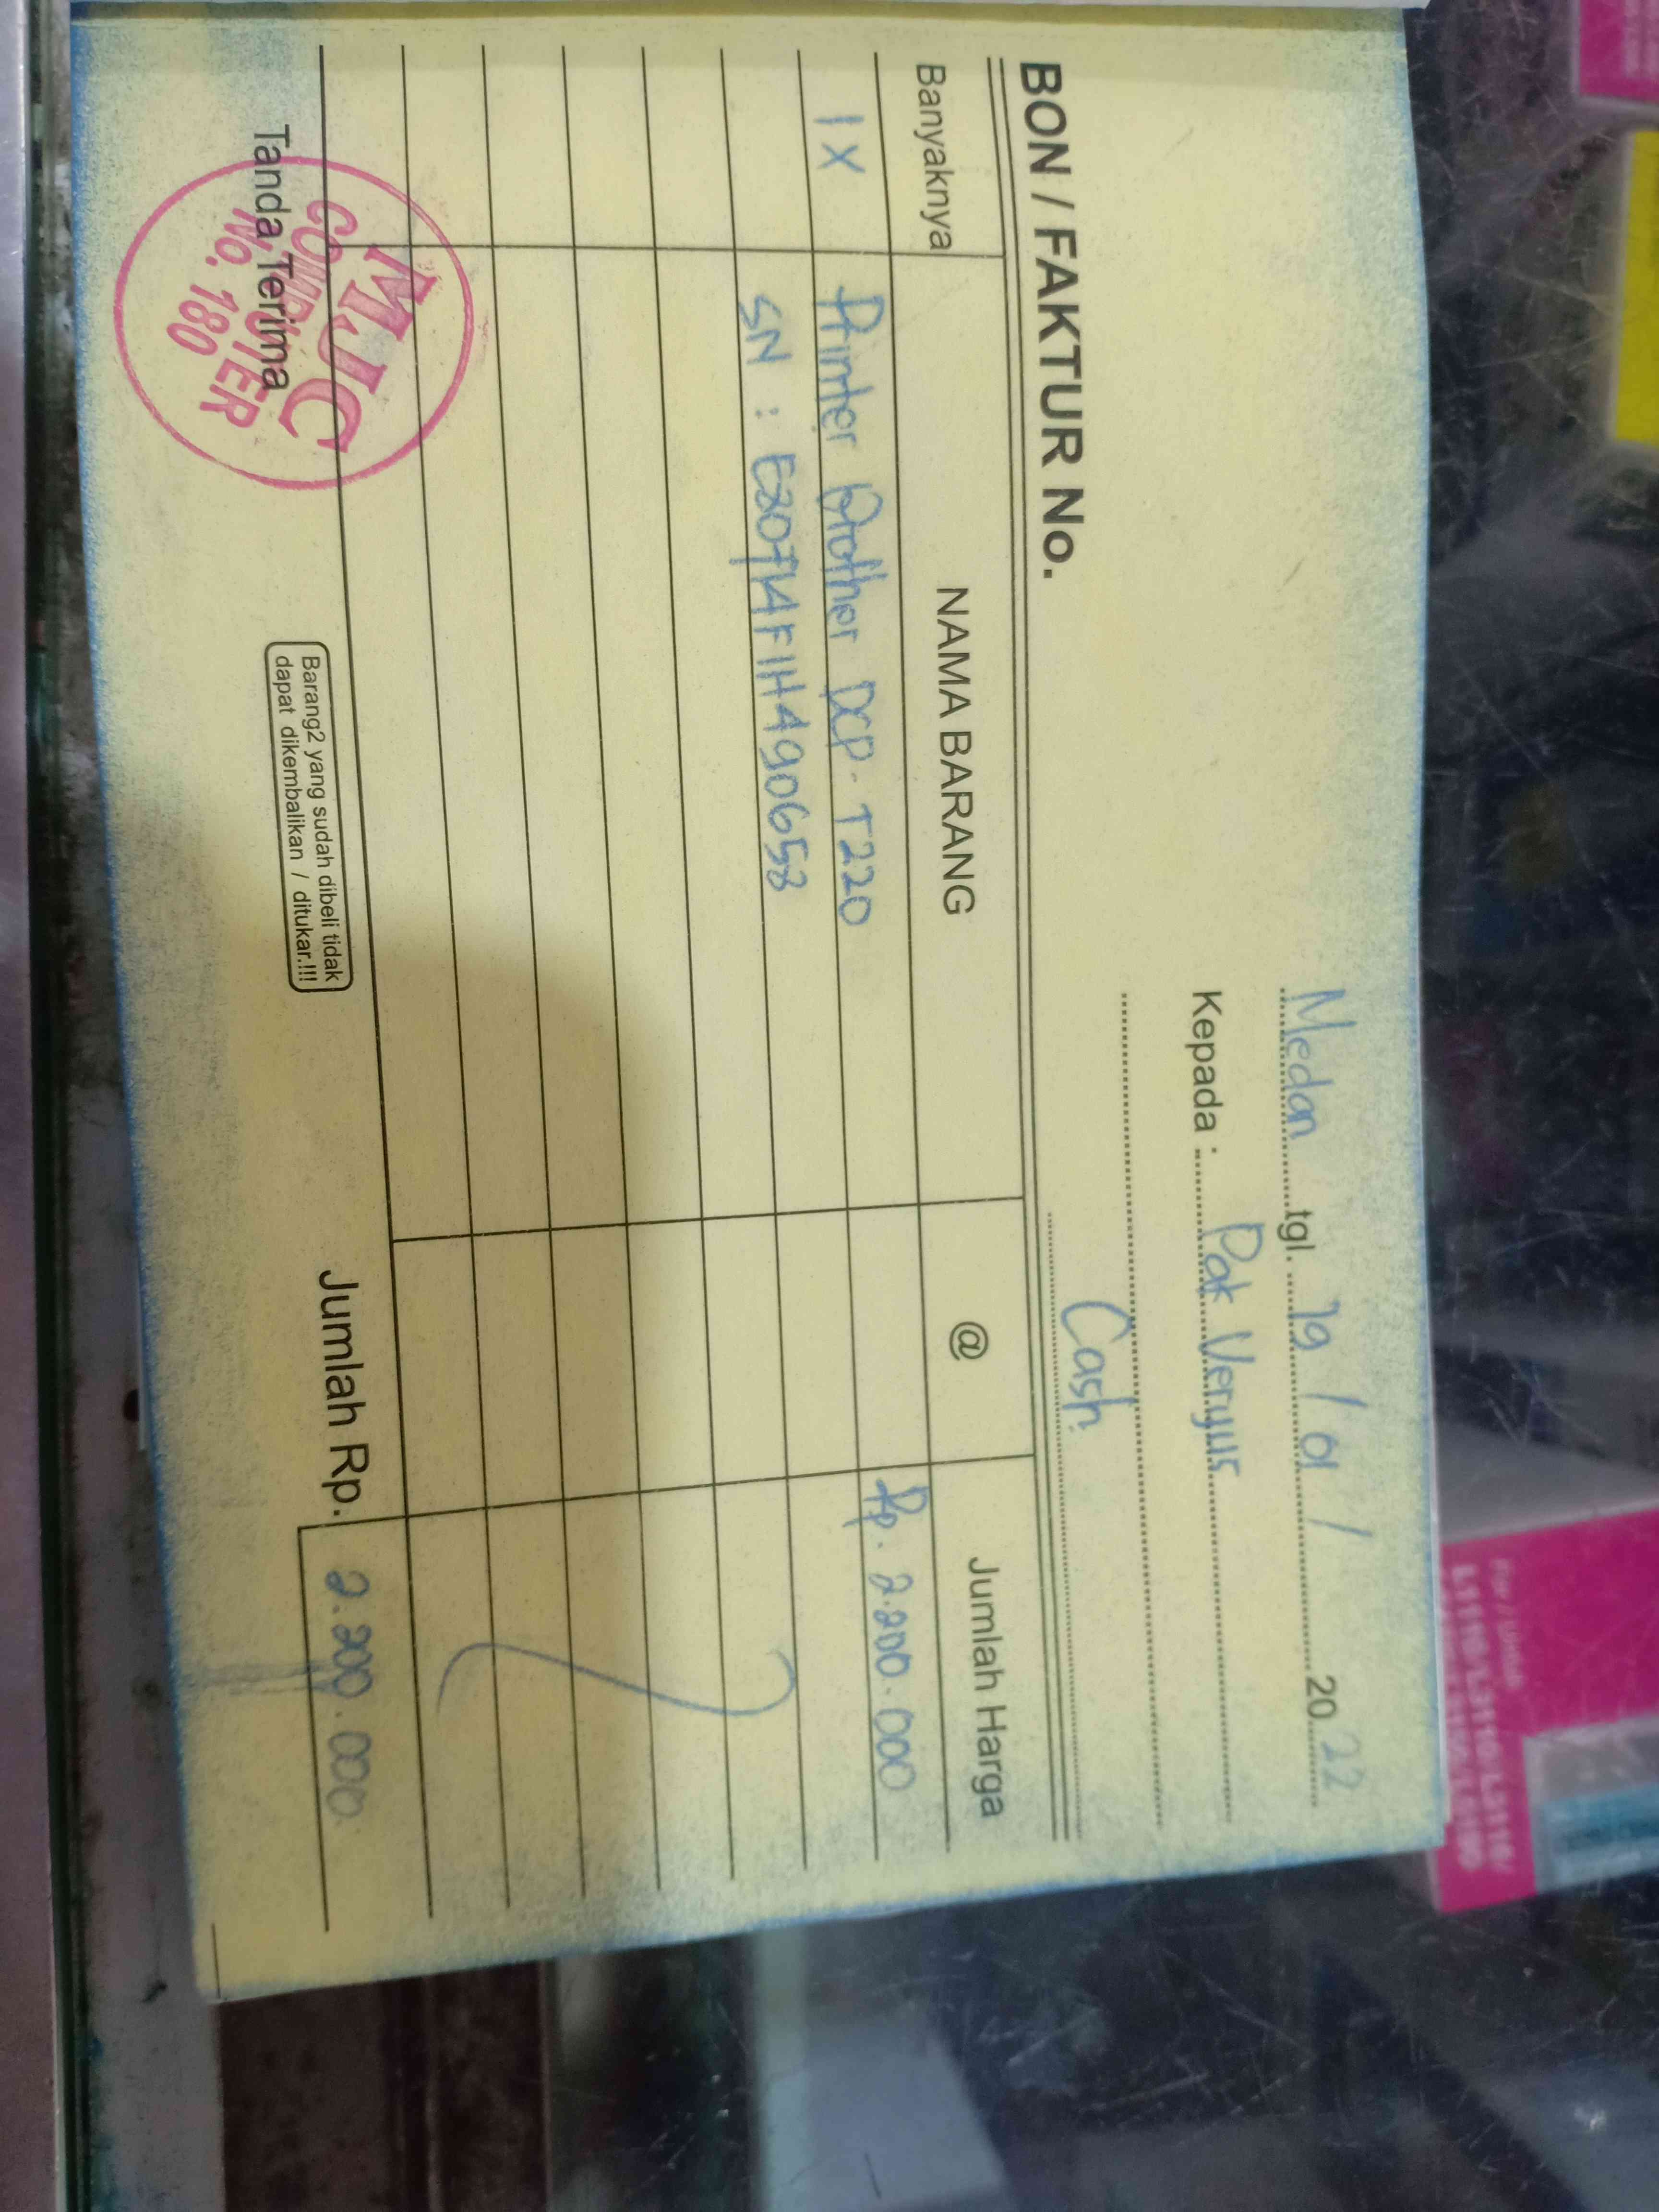 Medan tgl. 19 / 01 / 20 22
Kepada : Pak Veryus
Cash
BON / FAKTUR No.
Banyaknya NAMA BARANG @ Jumlah Harga
1 X Printer Brother DCP-T220 Rp. 2.200.000
SN : E80714F1H490658
Jumlah Rp. 2.200.000
Tanda Terima
MJC
COMPUTER
No. 180
Barang2 yang sudah dibeli tidak
dapat dikembalikan / ditukar.!!!
For / untuk